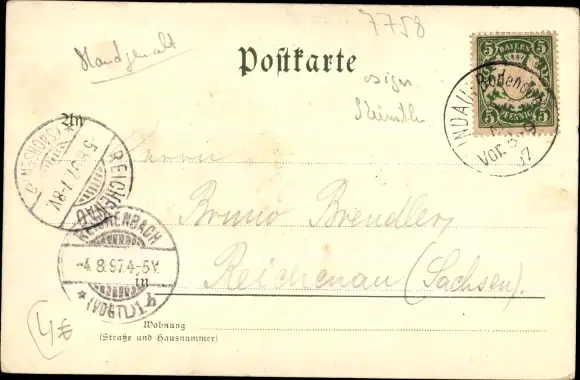 7758
Handgemalt
Postkarte
5 BAYERN 5
PFENNIG
sign.
Künstler
LINDAU
Bodensee
VOR.
97
An
Herrn
REICHENAU
(SACHSEN)
5.8.97.7-8V.
Bruno Brendler,
REICHENBACH
-4.8.97.4-5V.
(VOGTL.)
in
Reichenau (Sachsen).
4€
Wohnung
(Straße und Hausnummer)